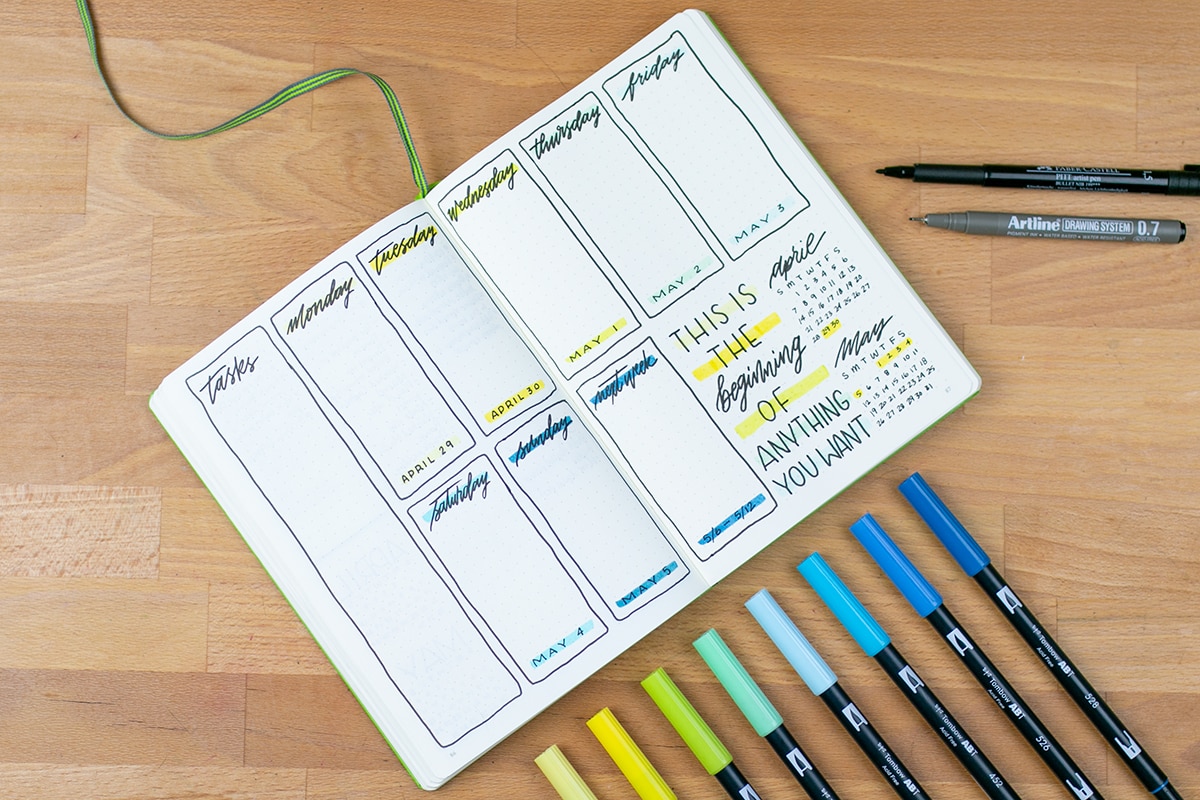 tasks
monday
APRIL 29
tuesday
APRIL 30
wednesday
MAY 1
thursday
MAY 2
friday
MAY 3
saturday
MAY 4
sunday
MAY 5
next week
5/6 - 5/12
THIS IS
THE
beginning
OF
ANYTHING
YOU WANT
april
S M T W T F S
1 2 3 4 5 6
7 8 9 10 11 12 13
14 15 16 17 18 19 20
21 22 23 24 25 26 27
28 29 30
May
S M T W T F S
1 2 3 4
5 6 7 8 9 10 11
12 13 14 15 16 17 18
19 20 21 22 23 24 25
26 27 28 29 30 31
FABER-CASTELL
PITT artist pen
BULLET NIB
1.5
Artline DRAWING SYSTEM 0.7
PIGMENT INK • WATER BASED • WATER RESISTANT
Tombow ABT 528
Acid Free
Tombow ABT 526
Acid Free
Tombow ABT 452
Acid Free
Tombow
Acid Free